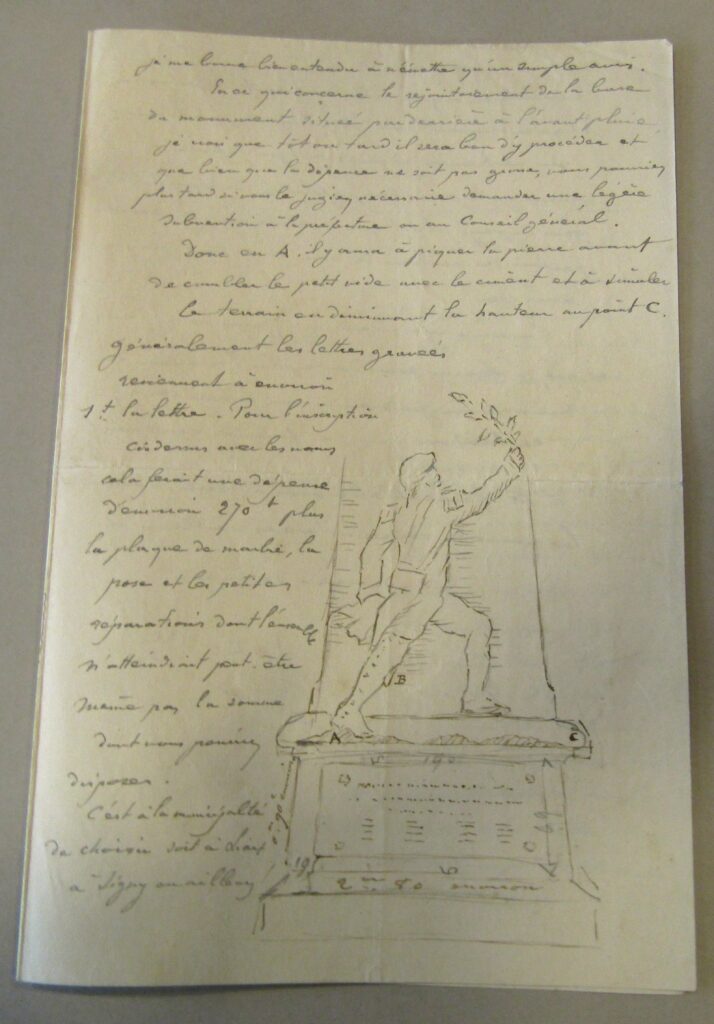 je me borne bien entendu à n'émettre qu'un simple avis.
En ce qui concerne le rejointoiement de la base
du monument située par derrière à l'avant pluie
je crois que tôt ou tard il sera bon d'y procéder et
que bien que la dépense ne soit pas grosse, vous pourriez
plus tard si vous le jugiez nécessaire demander une légère
subvention à la préfecture ou au Conseil général.
Donc en A. il y aura à piquer la pierre avant
de combler le petit vide avec le ciment et à simuler
le terrain en diminuant la hauteur au point C.
généralement les lettres gravées
reviennent à environ
1f la lettre. Pour l'inscription
ci-dessus avec les noms
cela ferait une dépense
d'environ 270f plus
la plaque de marbre, la
pose et les petites
réparations dont l'ensemble
n'atteindrait peut-être
même pas la somme
dont vous pouviez
disposer.
C'est à la municipalité
de choisir soit à Liart
à Signy ou ailleurs
B
A
C
190
0.90
69
19
2m 80 environ